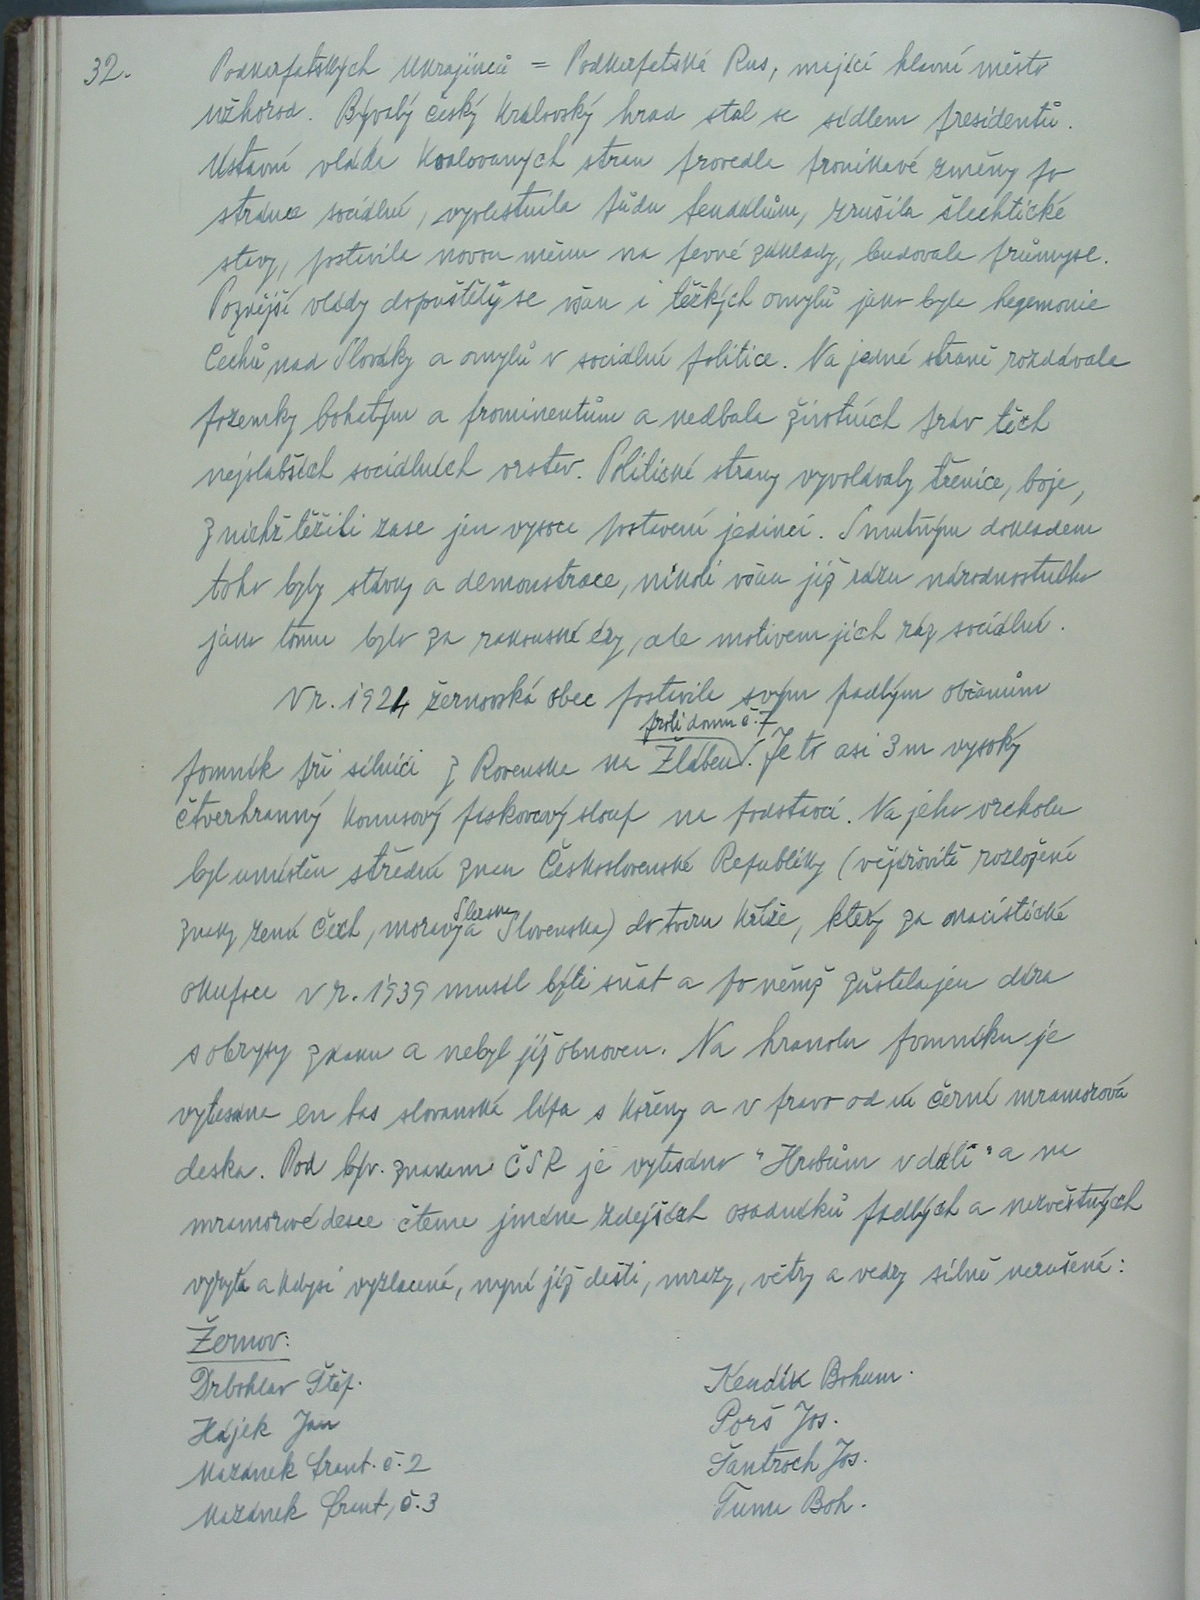 32.
Podkarpatských Ukrajinců = Podkarpatská Rus, mající hlavní město
Užhorod. Bývalý český královský hrad stal se sídlem presidentů.
Ústavní vláda koalovaných stran provedla pronikavé změny po
stránce sociální, vyvlastnila půdu feudálům, zrušila šlechtické
stavy, postavila novou měnu na pevné základy, budovala průmysl.
Pozdější vlády dopuštěly se však i těžkých omylů jako byla hegemonie
Čechů nad Slováky a omylů v sociální politice. Na jedné straně rozdávala
pozemky bohatým a prominentům a nedbala životních práv těch
nejslabších sociálních vrstev. Politické strany vyvolávaly třenice, boje,
z nichž těžili zase jen vysoce postavení jedinci. Smutným dokladem
toho byly stávky a demonstrace, nikoli však již rázu národnostního
jako tomu bylo za rakouské éry, ale motivem jich ráz sociální.
V r. 1924 žernovská obec postavila svým padlým občanům
proti domu č. 7
pomník při silnici z Rovenska na Žlábek. Je to asi 3 m vysoký
čtverhranný konusový pískovcový sloup na podstavci. Na jeho vrcholu
byl umístěn střední znak Československé Republiky (vějířovitě rozložené
Slezska
znaky zemí Čech, Moravy a Slovenska) do tvaru kříže, který za nacistické
okupace v r. 1939 musil býti sňat a po němž zůstala jen díra
s obrysy znaku a nebyl již obnoven. Na hranolu pomníku je
vytesána en bas slovanská lípa s kořeny a v pravo od ní černá mramorová
deska. Pod býv. znakem ČSR je vytesáno "Hrobům v dáli" a na
mramorové desce čteme jména zdejších osadníků padlých a nezvěstných
vyrytá a kdysi vyzlacená, nyní již dešti, mrazy, větry a vedry silně narušená:
Žernov:
Drbohlav Štěp. Kendík Bohum.
Hájek Jan Porš Jos.
Mazánek Frant. č. 2 Šantroch Jos.
Mazánek Frant, č. 3 Tuma Boh.